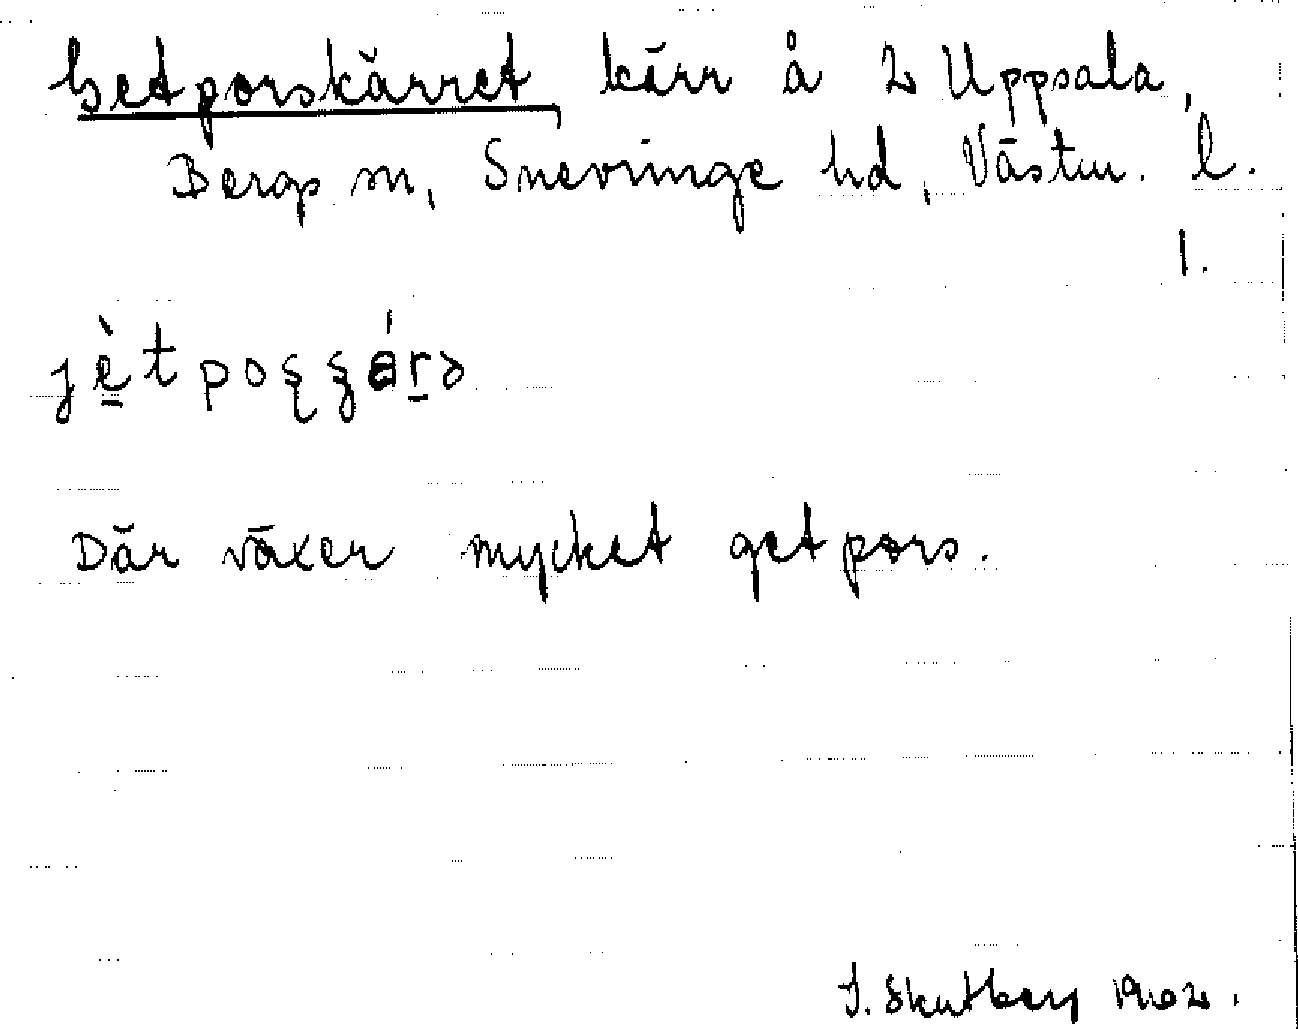 Getporskärret, kärr å 2 Uppsala,
Bergs sn, Snevringe hd, Västm. l.
1.
Där växer mycket getpors.
S. Skutberg 1902.